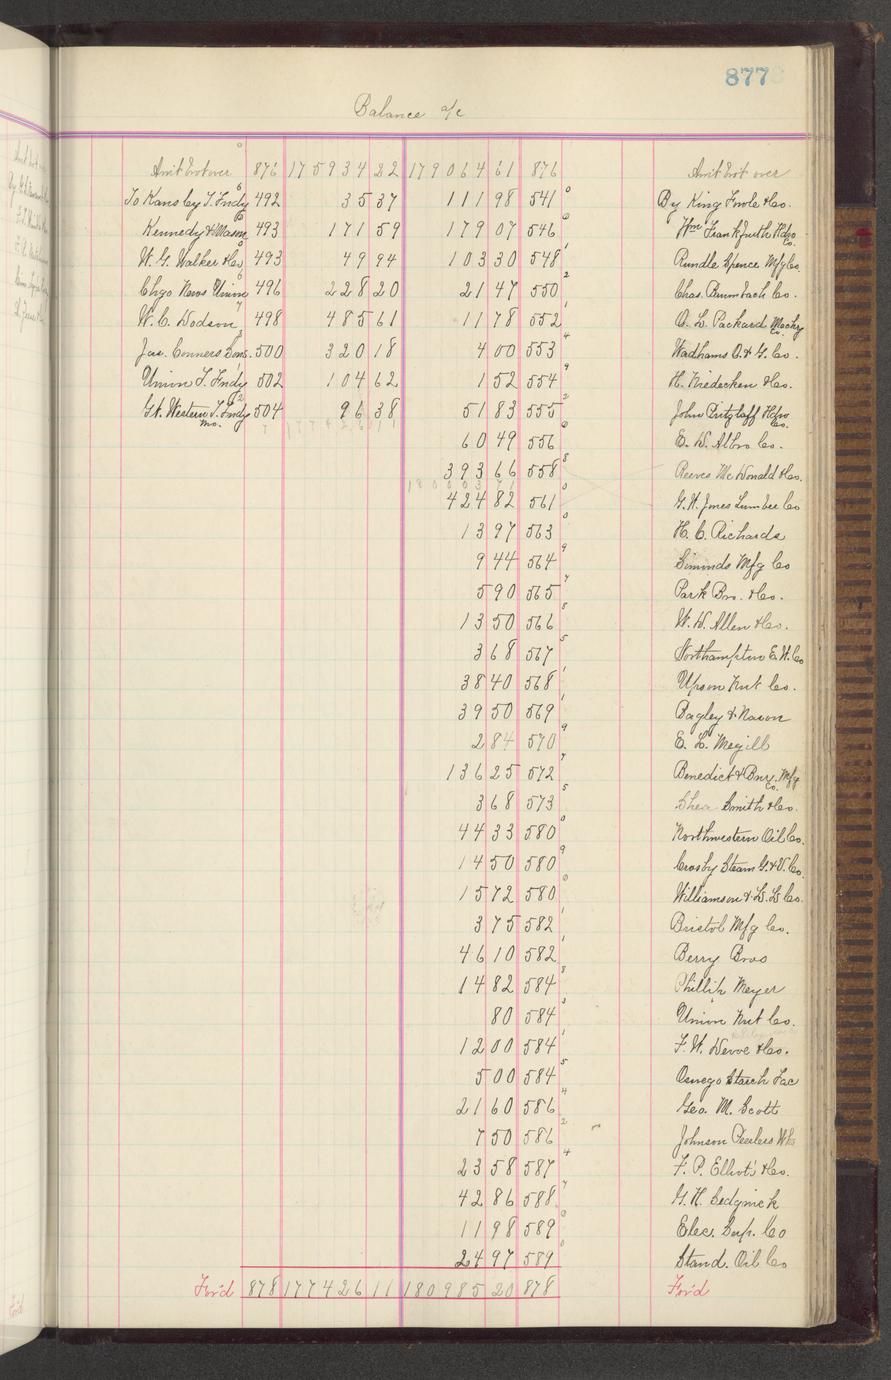 877
Balance a/c
Amt brot over 876 175934 22 179064 61 876 Amt brot over
To Kans by T. Fndy 492 35 37 111 98 541 By King Fowle & Co.
Kennedy & Mason 493 171 59 179 07 546 Wm Frankfurth Hdw Co.
W. G. Walker & Co 493 49 94 103 30 548 Rundle Spence Mfg Co.
Chgo News Union 496 228 20 21 47 550 Chas. Baumbach Co.
W. C. Dodson 498 485 61 11 78 552 O. L. Packard Machy Co.
Jas. Conners Sons. 500 320 18 4 00 553 Wadhams O. & G. Co.
Union T. Fndy 502 104 62 1 52 554 H. Niedecken & Co.
Gt. Western T. Fndy 504 96 38 51 83 555 John Pritzlaff Hdw Co.
60 49 556 E. D. Albro Co.
393 66 558 Reeves McDonald & Co.
180003 71
424 82 561 G. H. Jones Lumber Co
13 97 563 H. C. Richards
9 44 564 Simonds Mfg Co
5 90 565 Park Bro. & Co.
13 50 566 W. D. Allen & Co.
3 68 567 Northampton E. W. Co
38 40 568 Upson Nut Co.
39 50 569 Bagley & Nason
2 84 570 E. L. Megill
136 25 572 Benedict & Bny. Mfg Co.
3 68 573 Smith & Co.
44 33 580 Northwestern Oil Co.
14 50 580 Crosby Steam G. & V. Co.
15 72 580 Williamson & L. L. Co.
3 75 582 Bristol Mfg Co.
46 10 582 Berry Bros
14 82 584 Phillip Meyer
80 584 Union Nut Co.
12 00 584 F. W. Devoe & Co.
5 00 584 Oswego Starch Fac
21 60 586 Geo. M. Scott
7 50 586 Johnson Peerless Wks
23 58 587 F. P. Elliot's & Co.
42 86 588 G. H. Sedgwick
11 98 589 Elec. Sup. Co
24 97 589 Stand. Oil Co
For'd 878 177426 11 180985 20 878 For'd